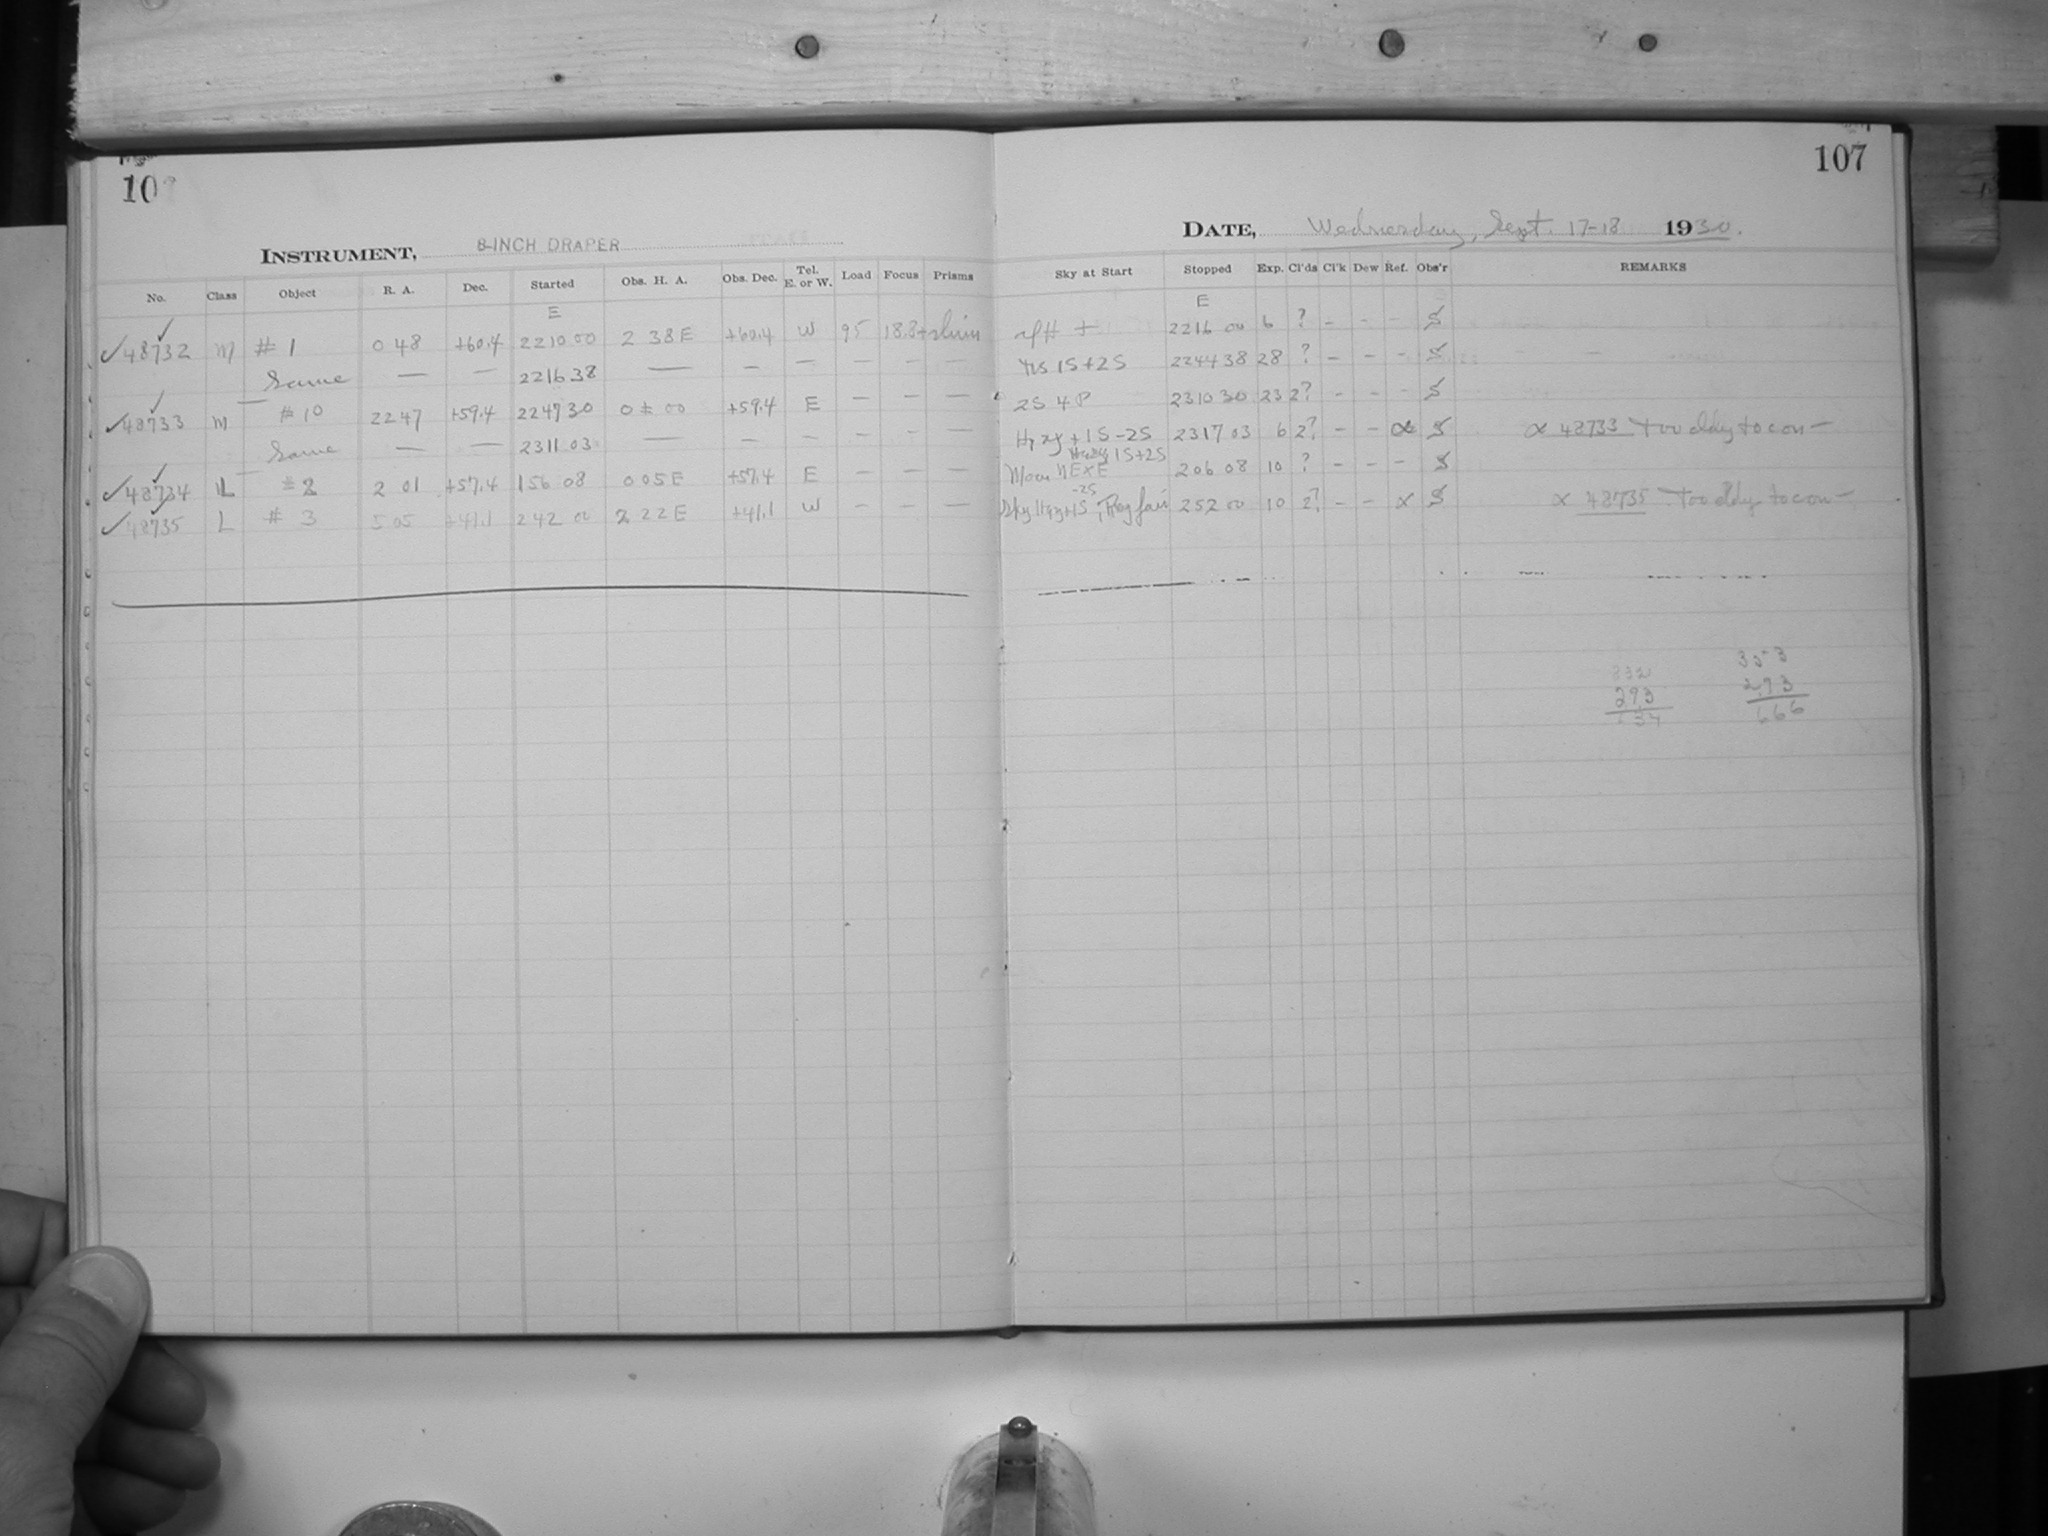 10
107
INSTRUMENT, 8-INCH DRAPER
DATE, Wednesday, Sept. 17-18 1930.
No. Class Object R. A. Dec. Started Obs. H. A. Obs. Dec. Tel. E. or W. Load Focus Prisms Sky at Start Stopped Exp. Cl'ds Cl'k Dew Ref. Obs'r REMARKS
E E
✓48732 M # 1 0 48 +60.4 22 10 00 2 38 E +60.4 W 95 18.8+ + 22 16 00 6 ? - - - S
Same — — 22 16 38 — — — — — — 1S+2S 22 44 38 28 ? - - - S
✓48733 M # 10 22 47 +59.4 22 47 30 0 ± 00 +59.4 E — — — 2S 4P 23 10 30 23 2? - - - S
Same — — 23 11 03 — — — — — — Hzy +1S-2S 23 17 03 6 2? - - α S α 48733 Too cldy to con—
Hazy 1S+2S
✓48734 L # 2 2 01 +57.4 1 56 08 0 05 E +57.4 E — — — Moon NExE 2 06 08 10 ? - - - S
-2S
✓48735 L # 3 5 05 +41.1 2 42 00 2 22 E +41.1 W — — — Sky Hzy+1S, Reg fair 2 52 00 10 2? - - α S α 48735 Too cldy to con—
332 353
293 293
666